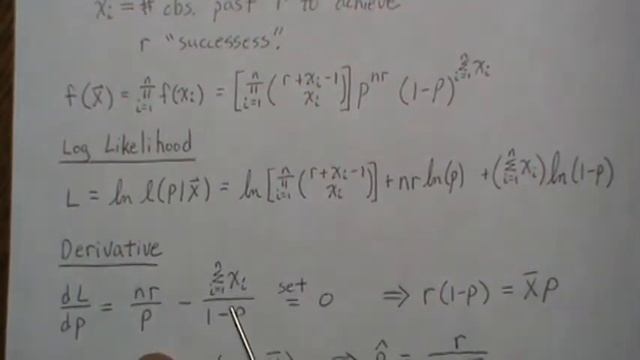 xᵢ = # obs. past r to achieve
r "successess".
f(x⃗) = ∏ᵢ₌₁ⁿ f(xᵢ) = [∏ᵢ₌₁ⁿ (r+xᵢ-1 xᵢ)] pⁿʳ (1-p)^(∑ᵢ₌₁ⁿ xᵢ)
Log Likelihood
L = ln l(p|x⃗) = ln[∏ᵢ₌₁ⁿ (r+xᵢ-1 xᵢ)] + nr ln(p) + (∑ᵢ₌₁ⁿ xᵢ) ln(1-p)
Derivative
dL/dp = nr/p - ∑ᵢ₌₁ⁿ xᵢ/(1-p) set = 0 ⇒ r(1-p) = x̄p
⇒ p̂ = r